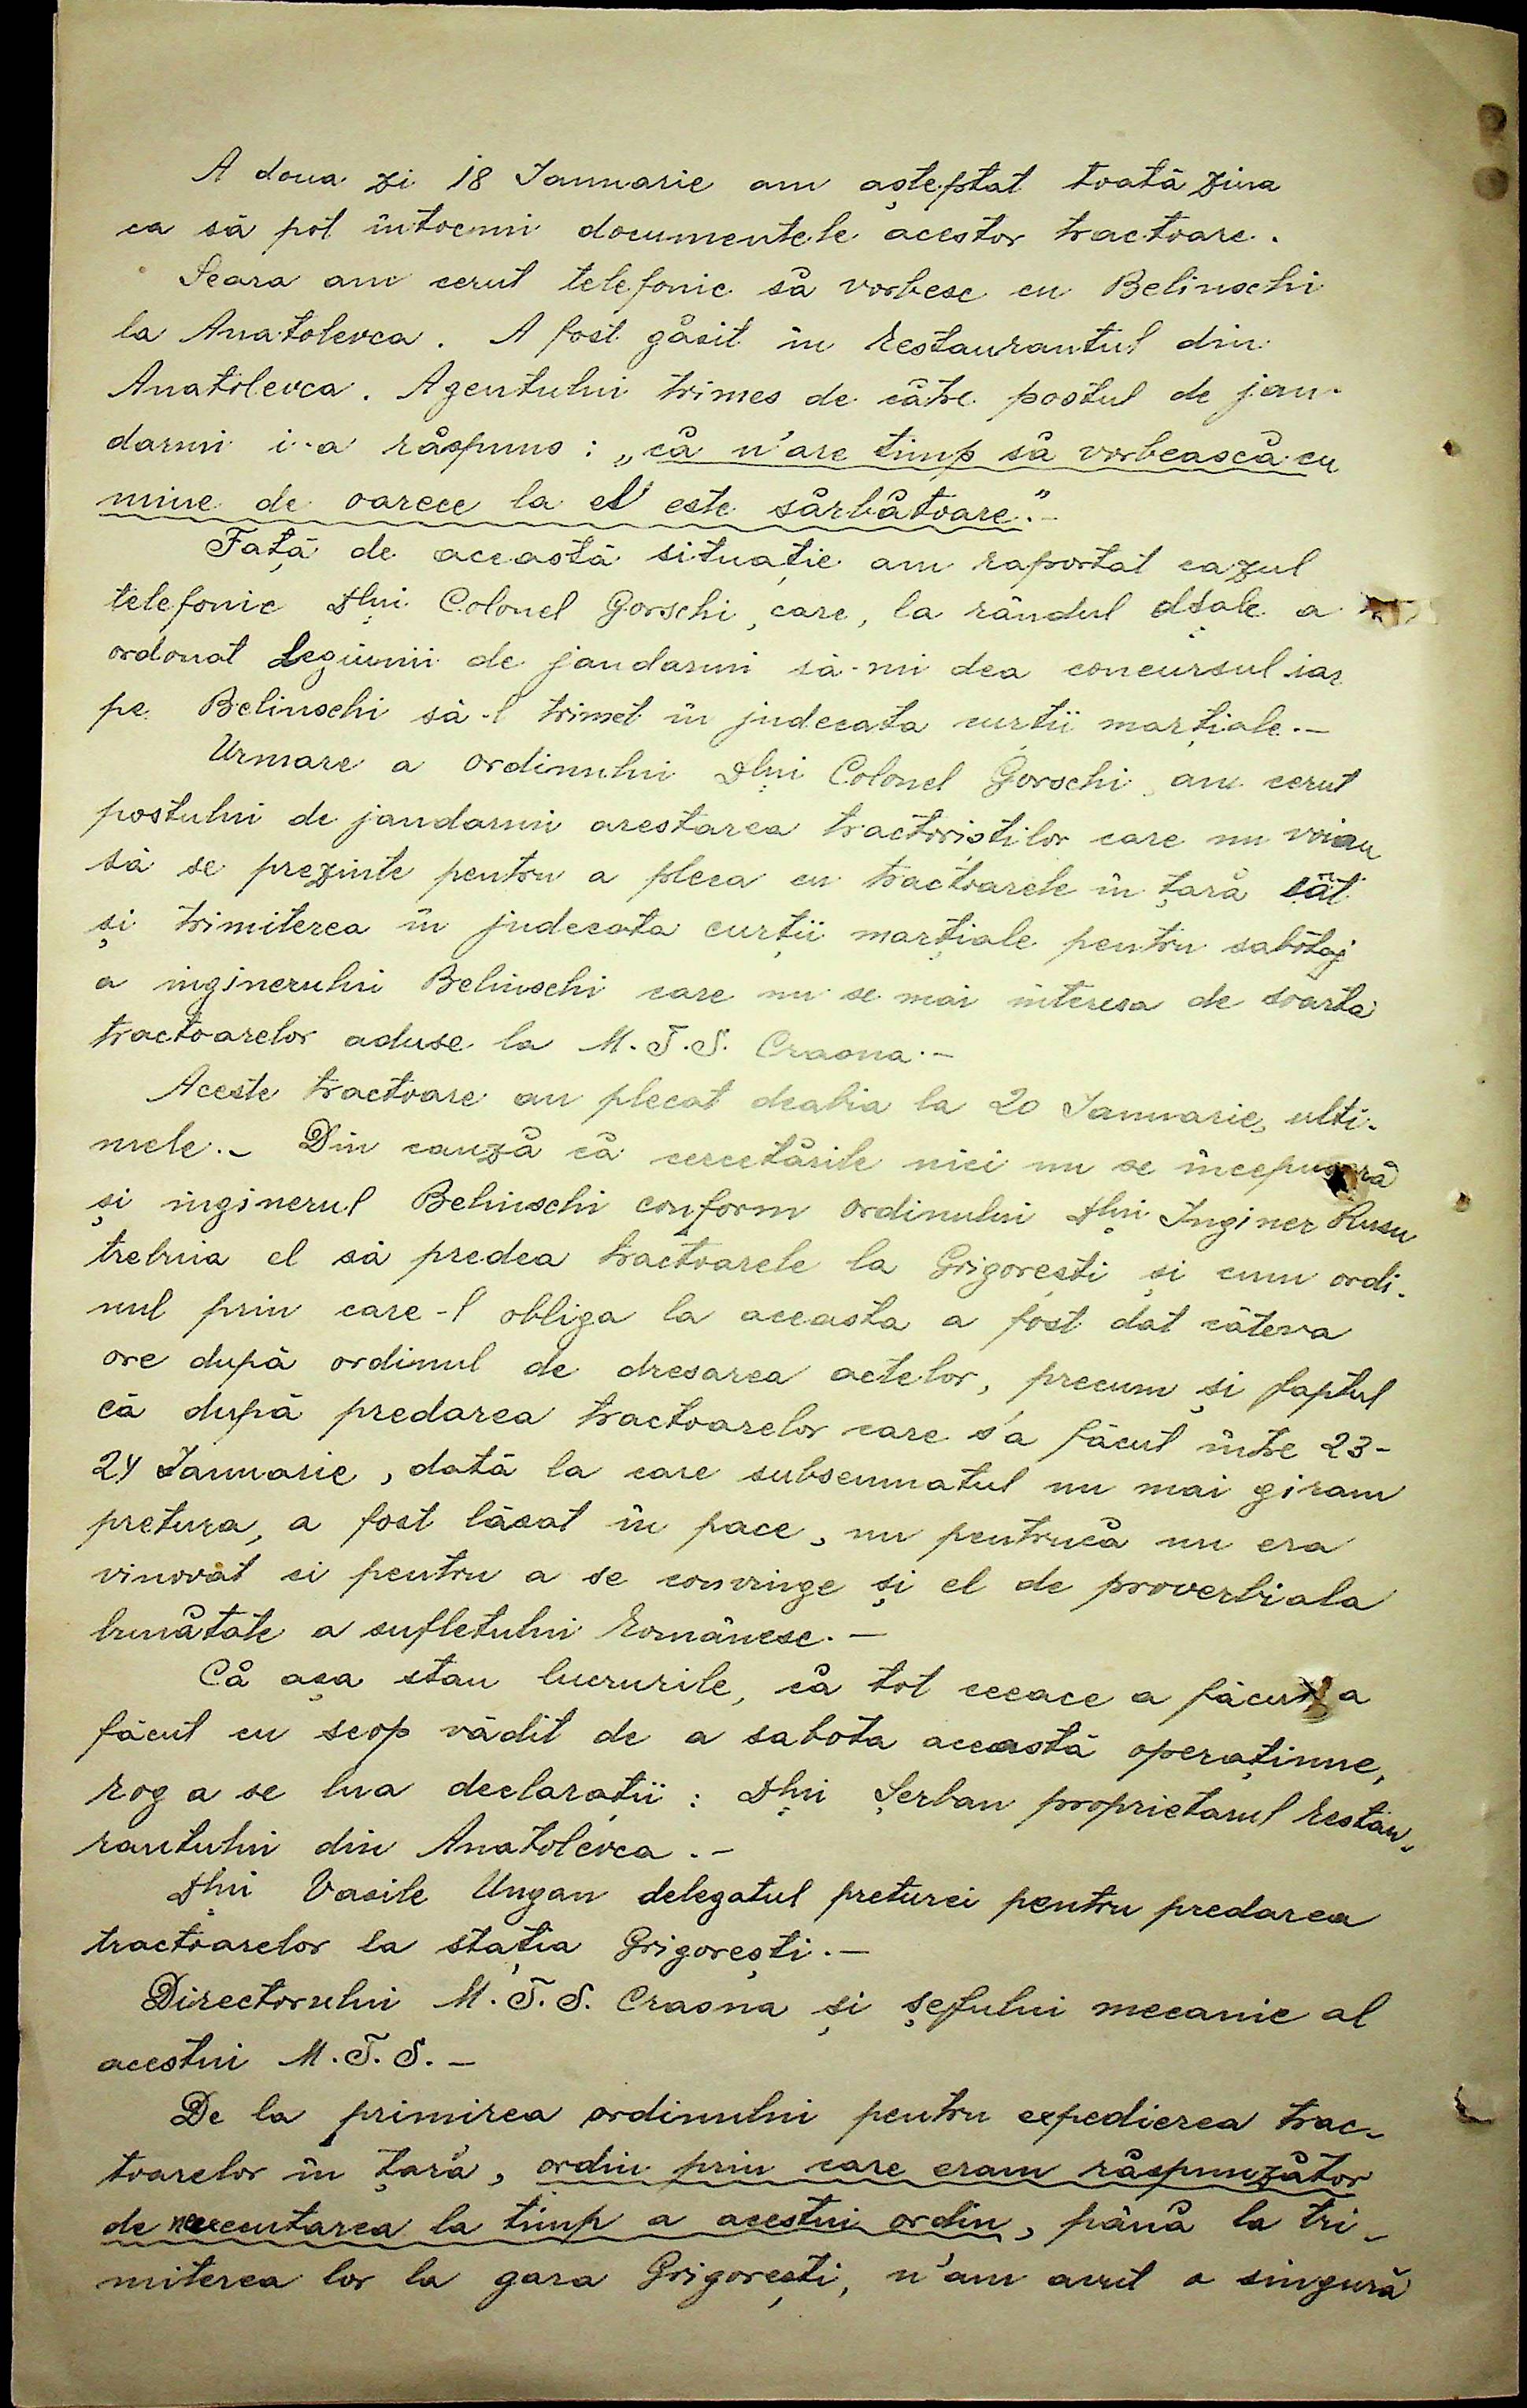 A doua zi 18 Ianuarie am așteptat toată ziua
ca să pot întocmi documentele acestor tractoare.
Seara am cerut telefonic să vorbesc cu Belinschi
la Anatolevca. A fost găsit în restaurantul din
Anatolevca. Agentului trimes de către postul de jan-
darmi i-a răspuns: „că n'are timp să vorbească cu
mine de oarece la el este sărbătoare."-
Față de această situație am raportat cazul
telefonic Dlui Colonel Gorschi, care, la rândul dsale a
ordonat Legiunii de jandarmi să-mi dea concursul iar
pe Belinschi să-l trimet în judecata curții marțiale.-
Urmare a ordinului Dlui Colonel Gorschi, am cerut
postului de jandarmi arestarea tractoriștilor care nu voiau
să se prezinte pentru a pleca cu tractoarele în țară cât
și trimiterea în judecata curții marțiale pentru sabotaj
a inginerului Belinschi care nu se mai interesa de soarta
tractoarelor aduse la M.T.S. Crasna.-
Aceste tractoare au plecat deabia la 20 Ianuarie, ulti-
mele.- Din cauză că cercetările nici nu se începuseră
și inginerul Belinschi conform ordinului Dlui Inginer Rusu
trebuia el să predea tractoarele la Grigorești și cum ordi-
nul prin care-l obliga la aceasta a fost dat câteva
ore după ordinul de dresarea actelor, precum și faptul
că după predarea tractoarelor care s'a făcut între 23-
24 Ianuarie, dată la care subsemnatul nu mai giram
pretura, a fost lăsat în pace, nu pentrucă nu era
vinovat ci pentru a se convinge și el de proverbiala
bunătate a sufletului românesc.-
Că așa stau lucrurile, că tot ceeace a făcut a
făcut cu scop vădit de a sabota această operațiune,
rog a se lua declarații: Dlui Șerban proprietarul restau-
rantului din Anatolevca.-
Dlui Vasile Ungan delegatul preturei pentru predarea
tractoarelor la stația Grigorești.-
Directorului M.T.S. Crasna și șefului mecanic al
acestui M.T.S.-
De la primirea ordinului pentru expedierea trac-
toarelor în țară, ordin prin care eram răspunzător
de neexecutarea la timp a acestui ordin, până la tri-
miterea lor la gara Grigorești, n'am avut o singură